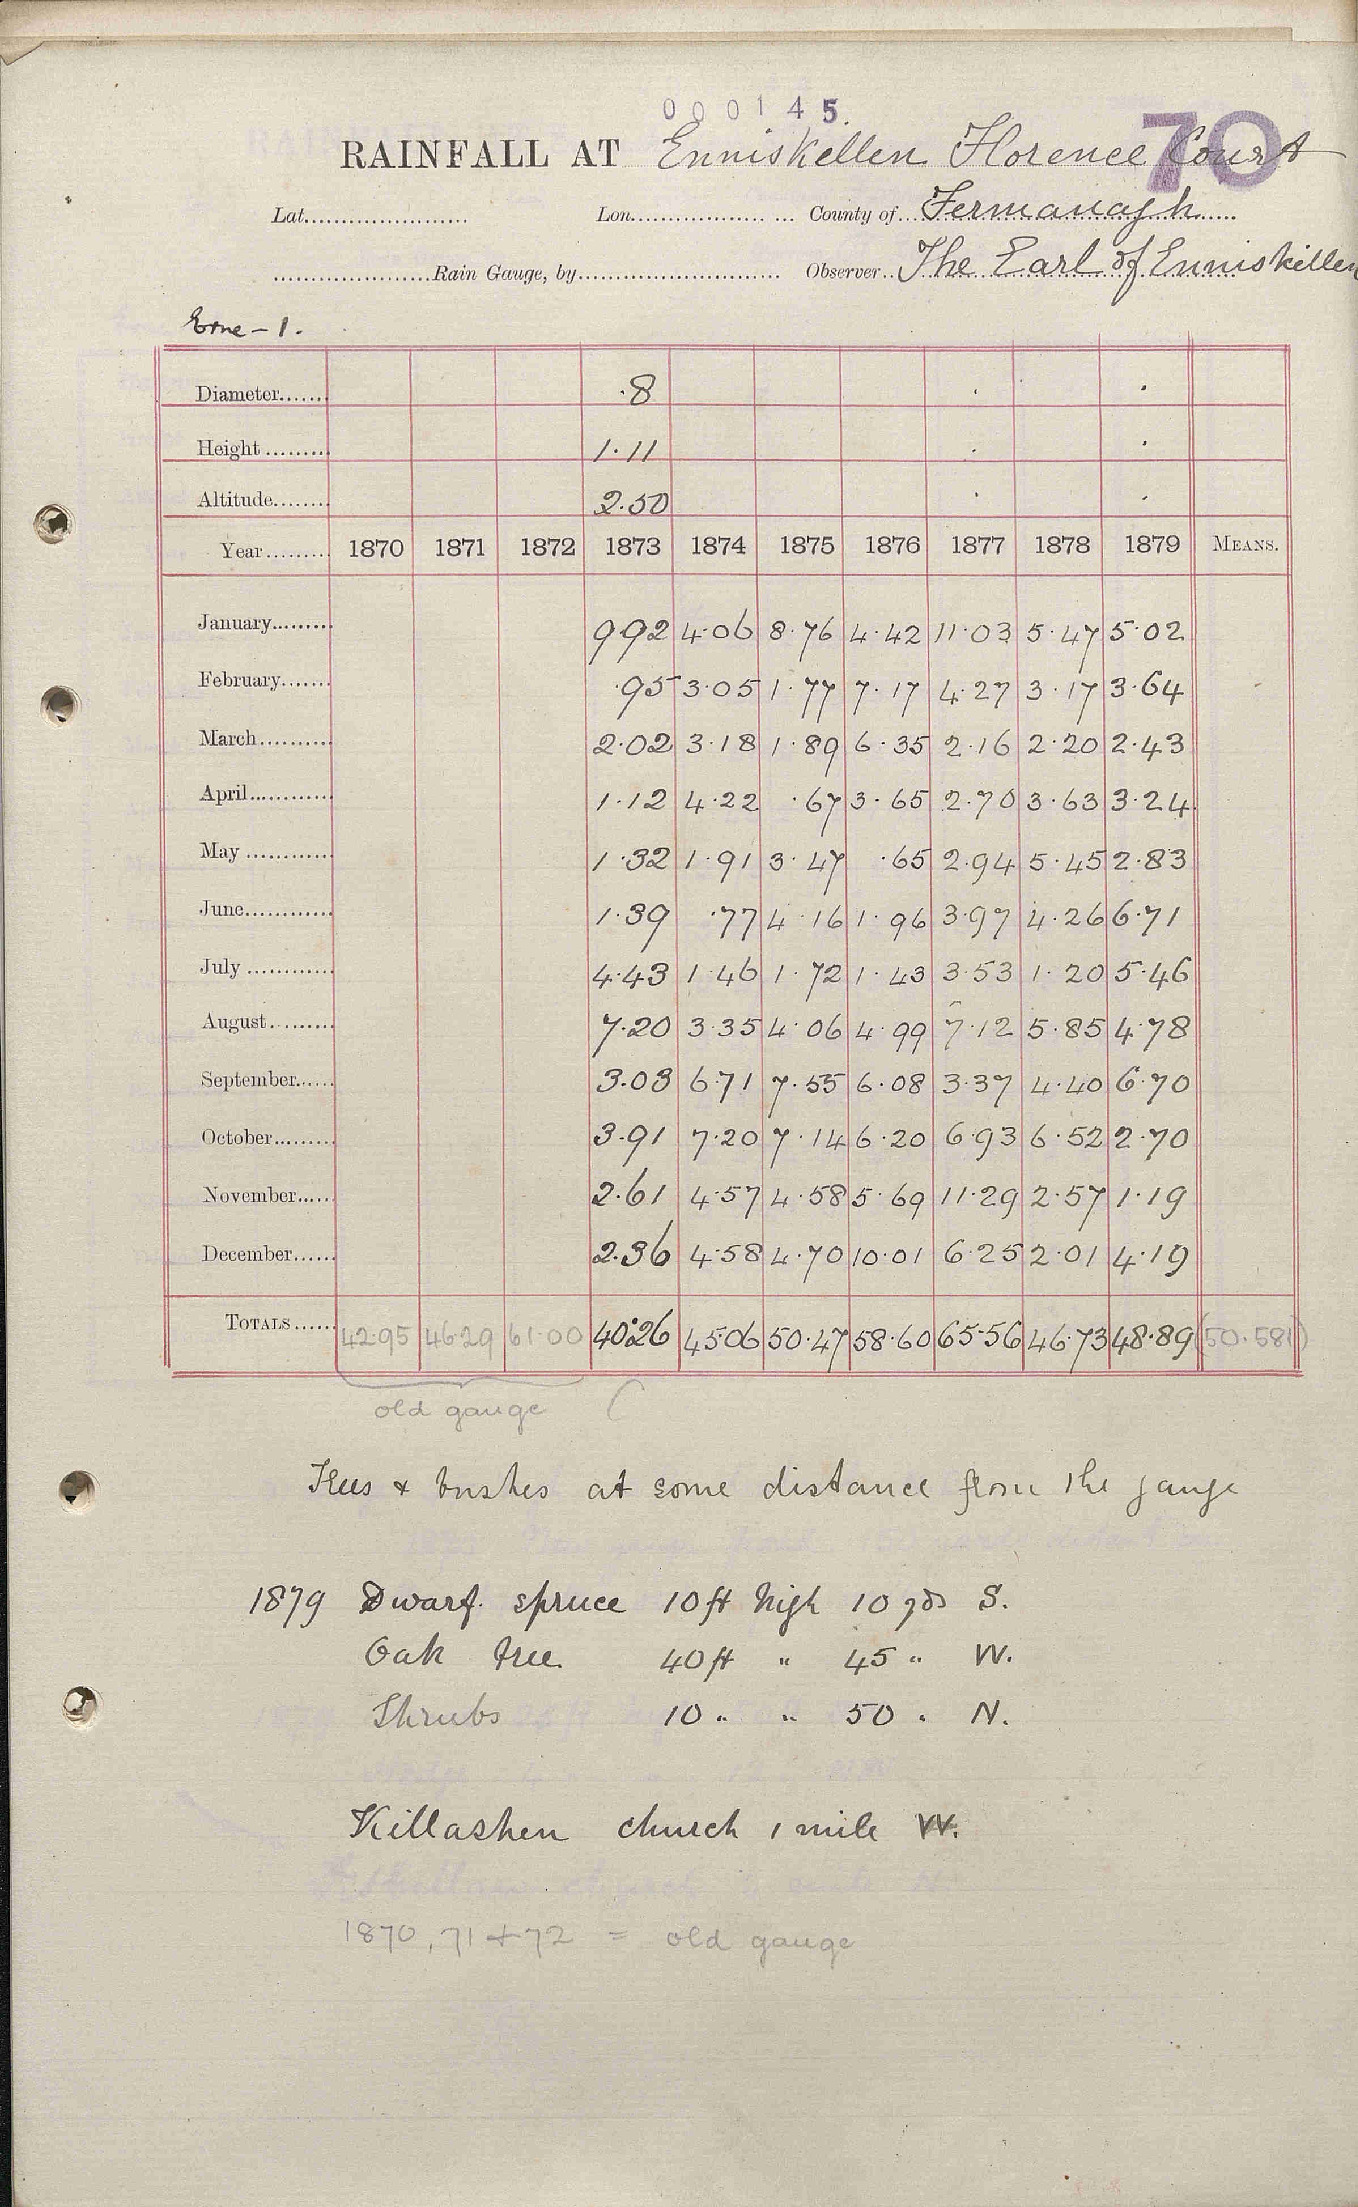 000145.
70
RAINFALL AT Enniskellen Florence Court
Lat. Lon. County of Fermanagh
Rain Gauge, by Observer The Earl of Enniskillen
Erne - 1.
Diameter ·8
Height 1·11
Altitude 2·50
Year 1870 1871 1872 1873 1874 1875 1876 1877 1878 1879 MEANS.
January 9 92 4·06 8·76 4·42 11·03 5·47 5·02
February ·95 3·05 1·77 7·17 4·27 3·17 3·64
March 2·02 3·18 1·89 6·35 2·16 2·20 2·43
April 1·12 4·22 ·67 3·65 2·70 3·63 3·24
May 1·32 1·91 3·47 ·65 2·94 5·45 2·83
June 1·39 ·77 4·16 1·96 3·97 4·26 6·71
July 4·43 1·46 1·72 1·43 3·53 1·20 5·46
August 7·20 3·35 4·06 4·99 7·12 5·85 4·78
September 3·03 6·71 7·55 6·08 3·37 4·40 6·70
October 3·91 7·20 7·14 6·20 6·93 6·52 2·70
November 2·61 4·57 4·58 5·69 11·29 2·57 1·19
December 2·36 4·58 4·70 10·01 6·25 2·01 4·19
TOTALS 42·95 46·29 61·00 40·26 45·06 50·47 58·60 65·56 46·73 48·89 (50·581)
old gauge
Trees & bushes at some distance from the gauge
1879 Dwarf spruce 10 ft high 10 yds S.
Oak tree 40 ft " 45 " W.
Shrubs 10 " " 50 " N.
Killashen church 1 mile W.
1870, 71 + 72 = old gauge